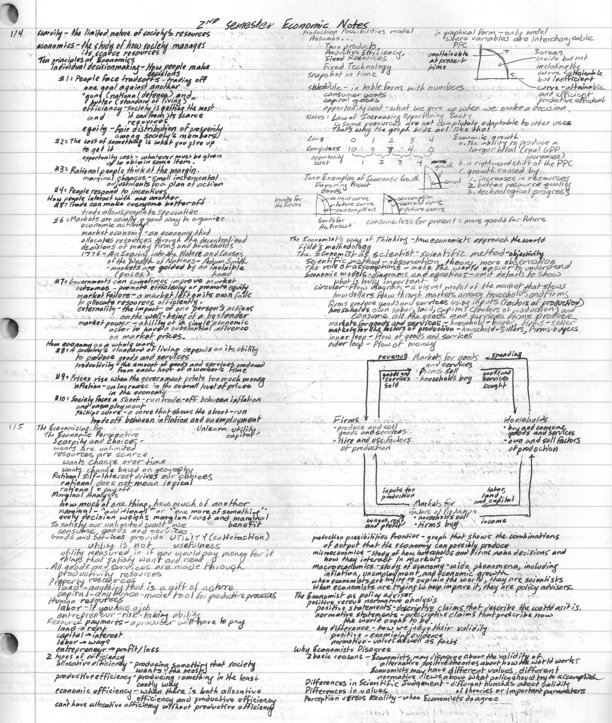 2ND semester Economic Notes
1/4 scarcity - the limited nature of society's resources
economics - the study of how society manages
its scarce resources
Ten principles of Economics
individual decisionmaking - How people make
decisions
#1: People face tradeoffs - trading off
one goal against another
"guns" (national defense) and
butter (standard of living)
efficiency - society getting the most
and it can from its scarce
resources
equity - fair distribution of prosperity
among society's members
#2: The cost of something is what you give up
to get it
opportunity cost - whatever must be given
up to obtain some item
#3: Rational people think at the margin.
marginal changes - small incremental
adjustments to a plan of action
#4: People respond to incentives
How people interact with one another
#5: Trade can make everyone better off
trade allows people to specialize
#6: Markets are usually a good way to organize
economic activity
market economy - an economy that
allocates resources through the decentralized
decisions of many firms and households
1776 - An Inquiry into the Nature and Causes
of the Wealth of Nations - Adam Smith
- markets are guided by an invisible
hand
#7: Governments can sometimes improve market
outcomes - promote efficiency or promote equity
market failure - a market left on its own fails
to allocate resources efficiently
externality - the impact of one person's actions
on the well-being of a bystander
market power - ability of a single economic
actor to have a substantial influence
on market prices.
How economy as a whole works
#8: A country's standard of living depends on its ability
to produce goods and services
productivity - the amount of goods and services produced
from each hour of a worker's time
#9: Prices rise when the government prints too much money
inflation - an increase in the overall level of prices
in the economy
#10: Society faces a short-run trade-off between inflation
and unemployment
Phillips curve - a curve that shows the short-run
trade off between inflation and unemployment
1/5 The Economizing
utility,
capital
The Economic Perspective
Scarcity and choices -
wants are unlimited
resources are scarce
wants change over time
wants change based on geography
Rational self-interest drives our choices
rational does not mean logical
Marginal Analysis
how much of one thing, how much of another
marginal - "additional" or "one more of something"
every decision weighs marginal cost and marginal
benefit
To satisfy our unlimited want, we
consume goods and services
Goods and services provide UTILITY (satisfaction)
utility is not usefulness
utility measured in if you would pay money for it
things that satisfy want and need
All goods and services are made through
productivity resources
Property resources
land - anything that is a gift of nature
capital - any human-made tool for productive processes
Human resources
labor - if you have a job
entrepreneur - risk-taking ability
Resource payments - a producer will have to pay
land → rent
capital → interest
labor → wage
entrepreneur → profit/loss
2 types of efficiency
allocative efficiency - producing something that society
wants (the most)
productive efficiency - producing something in the least
costly way
economic efficiency - when there is both allocative
efficiency and productive efficiency
can't have allocative efficiency without productive efficiency
Production possibilities model
Assumes...
Two products
Productive Efficiency,
Fixed Resources
Fixed Technology
Snapshot in time
schedule - in table form with numbers
consumer goods
capital goods
opportunity cost - what we give up when we make a decision
Notes: Law of Increasing Opportunity Costs
- some resources are not completely adaptable to other uses
That's why the graph bugs out like that
in graphical form - only model
where variables are interchangeable
PPC
unattainable
at present
time
3 areas
inside but not
including the
curve - attainable
but inefficient
curve - attainable
and efficient
productive efficient
Cars 0 1 2 3 4
Computers 10 9 7 4 0
opportunity
cost 1 2 3 4
Economic growth
a. The ability to produce a
larger total (real GDP
increases)
b. a rightward shift of the PPC
c. growth caused by
1. increases in resources
2. better resource quality
3. technological progress
Two Examples of Economic Growth
Favoring Present
Goods
Goods for
the Future
current curve
future curve
consumption
Goods for
the Present
consumption
current curve
future curve
consume less for present = more goods for future
The Economist's Way of Thinking - how economists approach the world
field's methodology
The Economist as scientist scientific method - objectivity
scientific method - observation, theory, more observation
The role of assumptions - make the world easier to understand
Economic models - diagrams and equations - omit details to show
what is truly important
circular-flow diagram - a visual model of the market that shows
how dollars flow through markets among households and firms
firms produce goods and services using inputs (factors of production)
households own labor, land, capital (factors of production) and
consume all the goods and services firms produce
markets for goods and services - households - buyers, firms - sellers
markets for the factors of production - households - sellers, firms - buyers
inner loop - flow of goods and services
outer loop - flow of money
revenue Markets for goods
and services
spending
goods and
services
sold
• firms sell
• households buy
goods and
services
bought
Firms
• produce and sell
goods and services
• hire and use factors
of production
Households
• buy and consume
goods and services
• own and sell factors
of production
inputs for
production
Markets for
Factors of Production
• households sell
• firms buy
labor,
land,
and capital
wages, rent,
and profit
income
production possibilities frontier - graph that shows the combinations
of output that the economy can possibly produce
microeconomics - study of how households and firms make decisions and
how they interact in markets
macroeconomics - study of economy-wide phenomena, including
inflation, unemployment, and economic growth.
when economists are trying to explain the world, they are scientists
when economists are trying to help improve it, they are policy advisors.
The Economist as policy adviser
positive versus normative analysis
positive statements - descriptive claims that describe the world as it is.
normative statements - prescriptive claims that prescribe how
the world ought to be.
key difference - how we judge their validity
positive - examining evidence
normative - values as well as facts
Why Economists Disagree
2 basic reasons - Economists may disagree about the validity of
alternative positive theories about how the world works
Economists may have different values, different
normative views about what policy should try to accomplish
Differences in Scientific Judgement - different hunches about validity
of theories or important parameters
Differences in values
Perception versus Reality - when Economists disagree